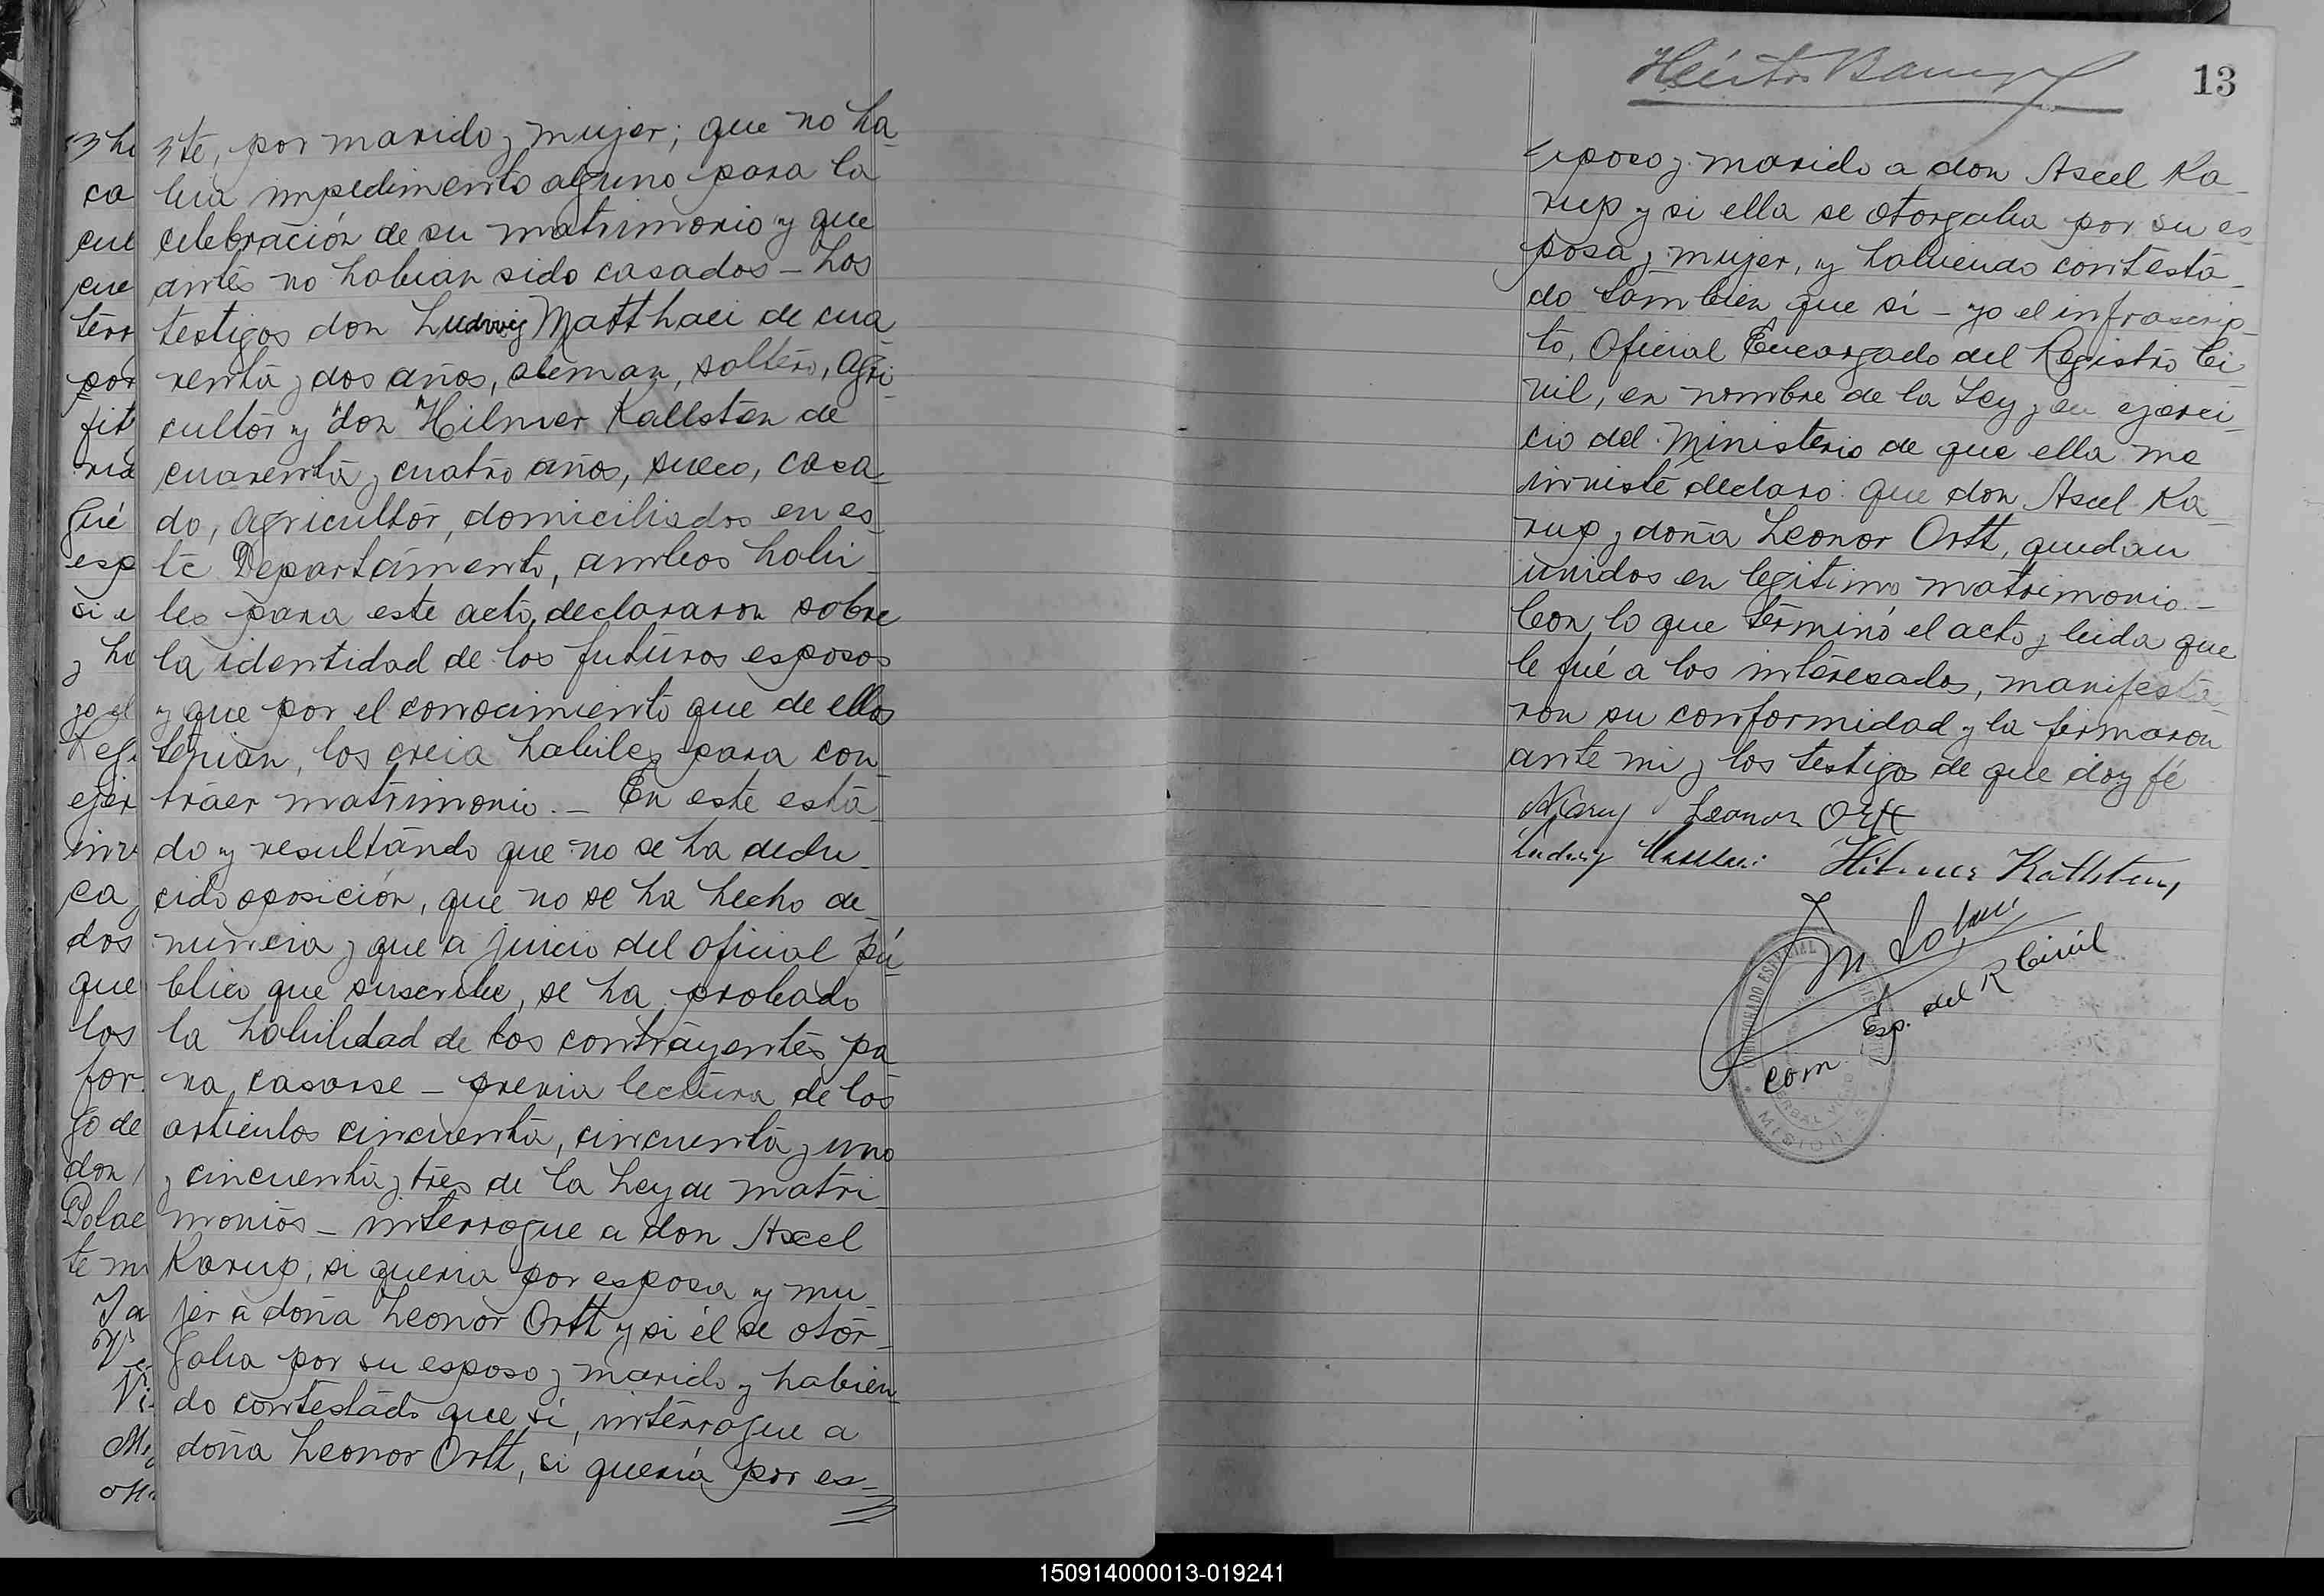 3 hi
ca
cul
cue
terr
por
fit
ria
Gué
esp
si e
y ho
yo el
Regi
ejer
inv
ca,
dos
que
los
for
go de
don
Polac
te mi
Ja
Ve
Vi
Mi
ste, por marido y mujer; que no ha-
bia impedimento alguno para la
celebración de su matrimonio y que
antes no habian sido casados - Los
testigos don Ludwig Matthaei de cua-
renta y dos años, aleman, soltero, agri-
cultor y don Hilmer Kallsten de
cuarenta y cuatro años, sueco, casa-
do, agricultor, domiciliados en es-
te Departamento, ambos habi-
les para este acto, declararon sobre
la identidad de los futuros esposos
y que por el conocimiento que de ellos
tenian, los creia habiles para con-
traer matrimonio. - En este esta-
do y resultando que no se ha dedu-
cido oposición, que no se ha hecho de-
nuncia y que a juicio del oficial pú-
blico que suscribe, se ha probado
la habilidad de los contrayentes pa-
ra casarse - previa lectura de los
articulos cincuenta, cincuenta y uno
y cincuenta y tres de la Ley de matri-
monios - interrogue a don Axcel
Karup, si queria por esposa y mu-
jer a doña Leonor Ortt y si él se otor-
gaba por su esposo y marido y habien-
do contestado que sí, interrogue a
doña Leonor Ortt, si quería por es-
13
esposo y marido a don Axcel Ka-
rup y si ella se otorgaba por su es-
posa y mujer, y habiendo contesta-
do tambien que sí - yo el infrascrip-
to, Oficial Encargado del Registro Ci-
vil, en nombre de la Ley y en ejerci-
cio del Ministerio de que ella me
inviste declaro: que don Axcel Ka-
rup y doña Leonor Ortt, quedan
unidos en legitimo matrimonio. -
Con lo que terminó el acto y leida que
le fué a los interesados, manifesta-
ron su conformidad y la firmaron
ante mi y los testigos de que doy fé
AKarup Leonor Ortt
Ludwig Matthaei Hilmer Kallsten
M
Com. Esp. del R Civil
MISIONES
150914000013-019241